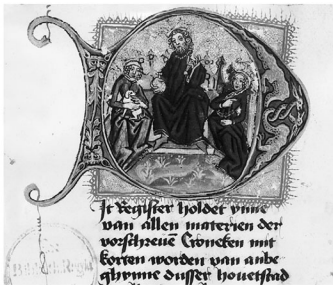 Dit Register holdet ynne
van allen materien der
vorschreuen Croneken mit
korten worden van anbe
ghynne dusser houetstad